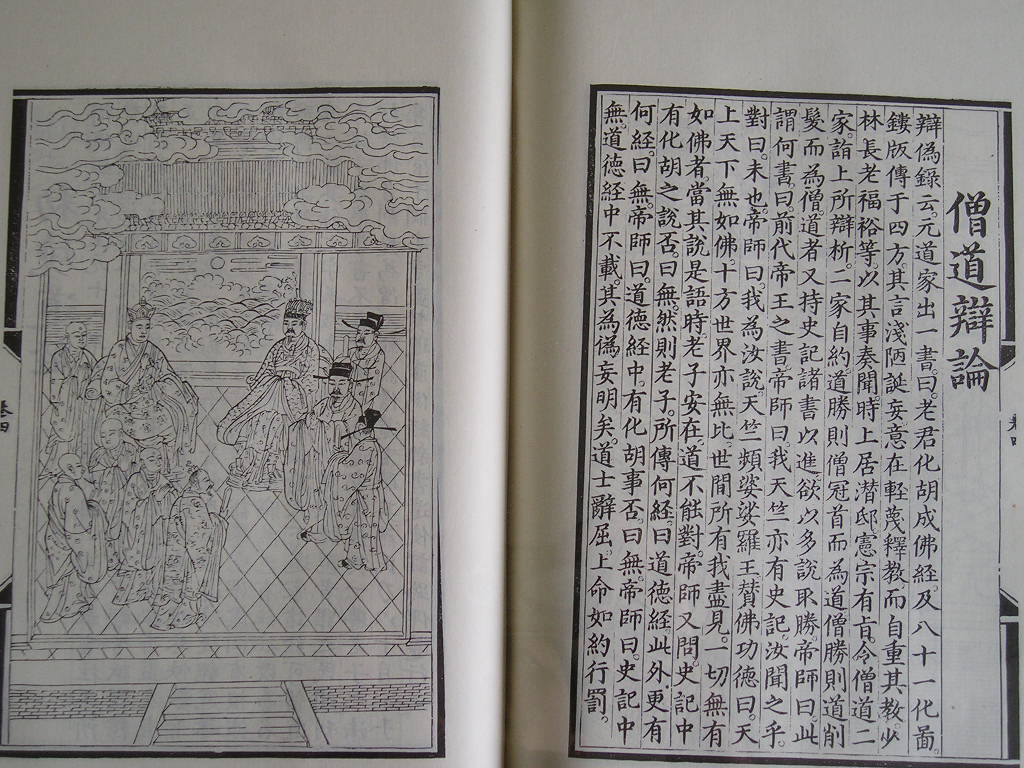 僧道辯論
辯偽録云。元道家出一書。曰。老君化胡成佛經及八十一化啚。
鏤版傳于四方其言淺陋誕妄意在輕蔑釋教而自重其教少
林長老福裕等以其事奏聞時上居潜邸憲宗有㫖令僧道二
家。詣上所辯析。二家自約道勝則僧冠首而為道僧勝則道削
髮而為僧道者又持史記諸書以進欲以多說取勝。帝師曰。此
謂何書。曰前代帝王之書。帝師曰。我天竺亦有史記。汝聞之乎。
對曰。未也。帝師曰。我為汝說。天竺頻婆娑羅王賛佛功德曰。天
上天下無如佛。十方世界亦無比。世間所有我盡見。一切無有
如佛者。當其說是語時。老子安在。道不能對。帝師又問。史記中
有化胡之說否。曰。無。然則老子。所傳何經。曰道德經此外更有
何經。曰。無。帝師曰。道德經中。有化胡事否。曰無。帝師曰。史記中
無。道德經中不載。其為偽妄明矣。道士辭屈。上命如約行罰。
卷四
卷四